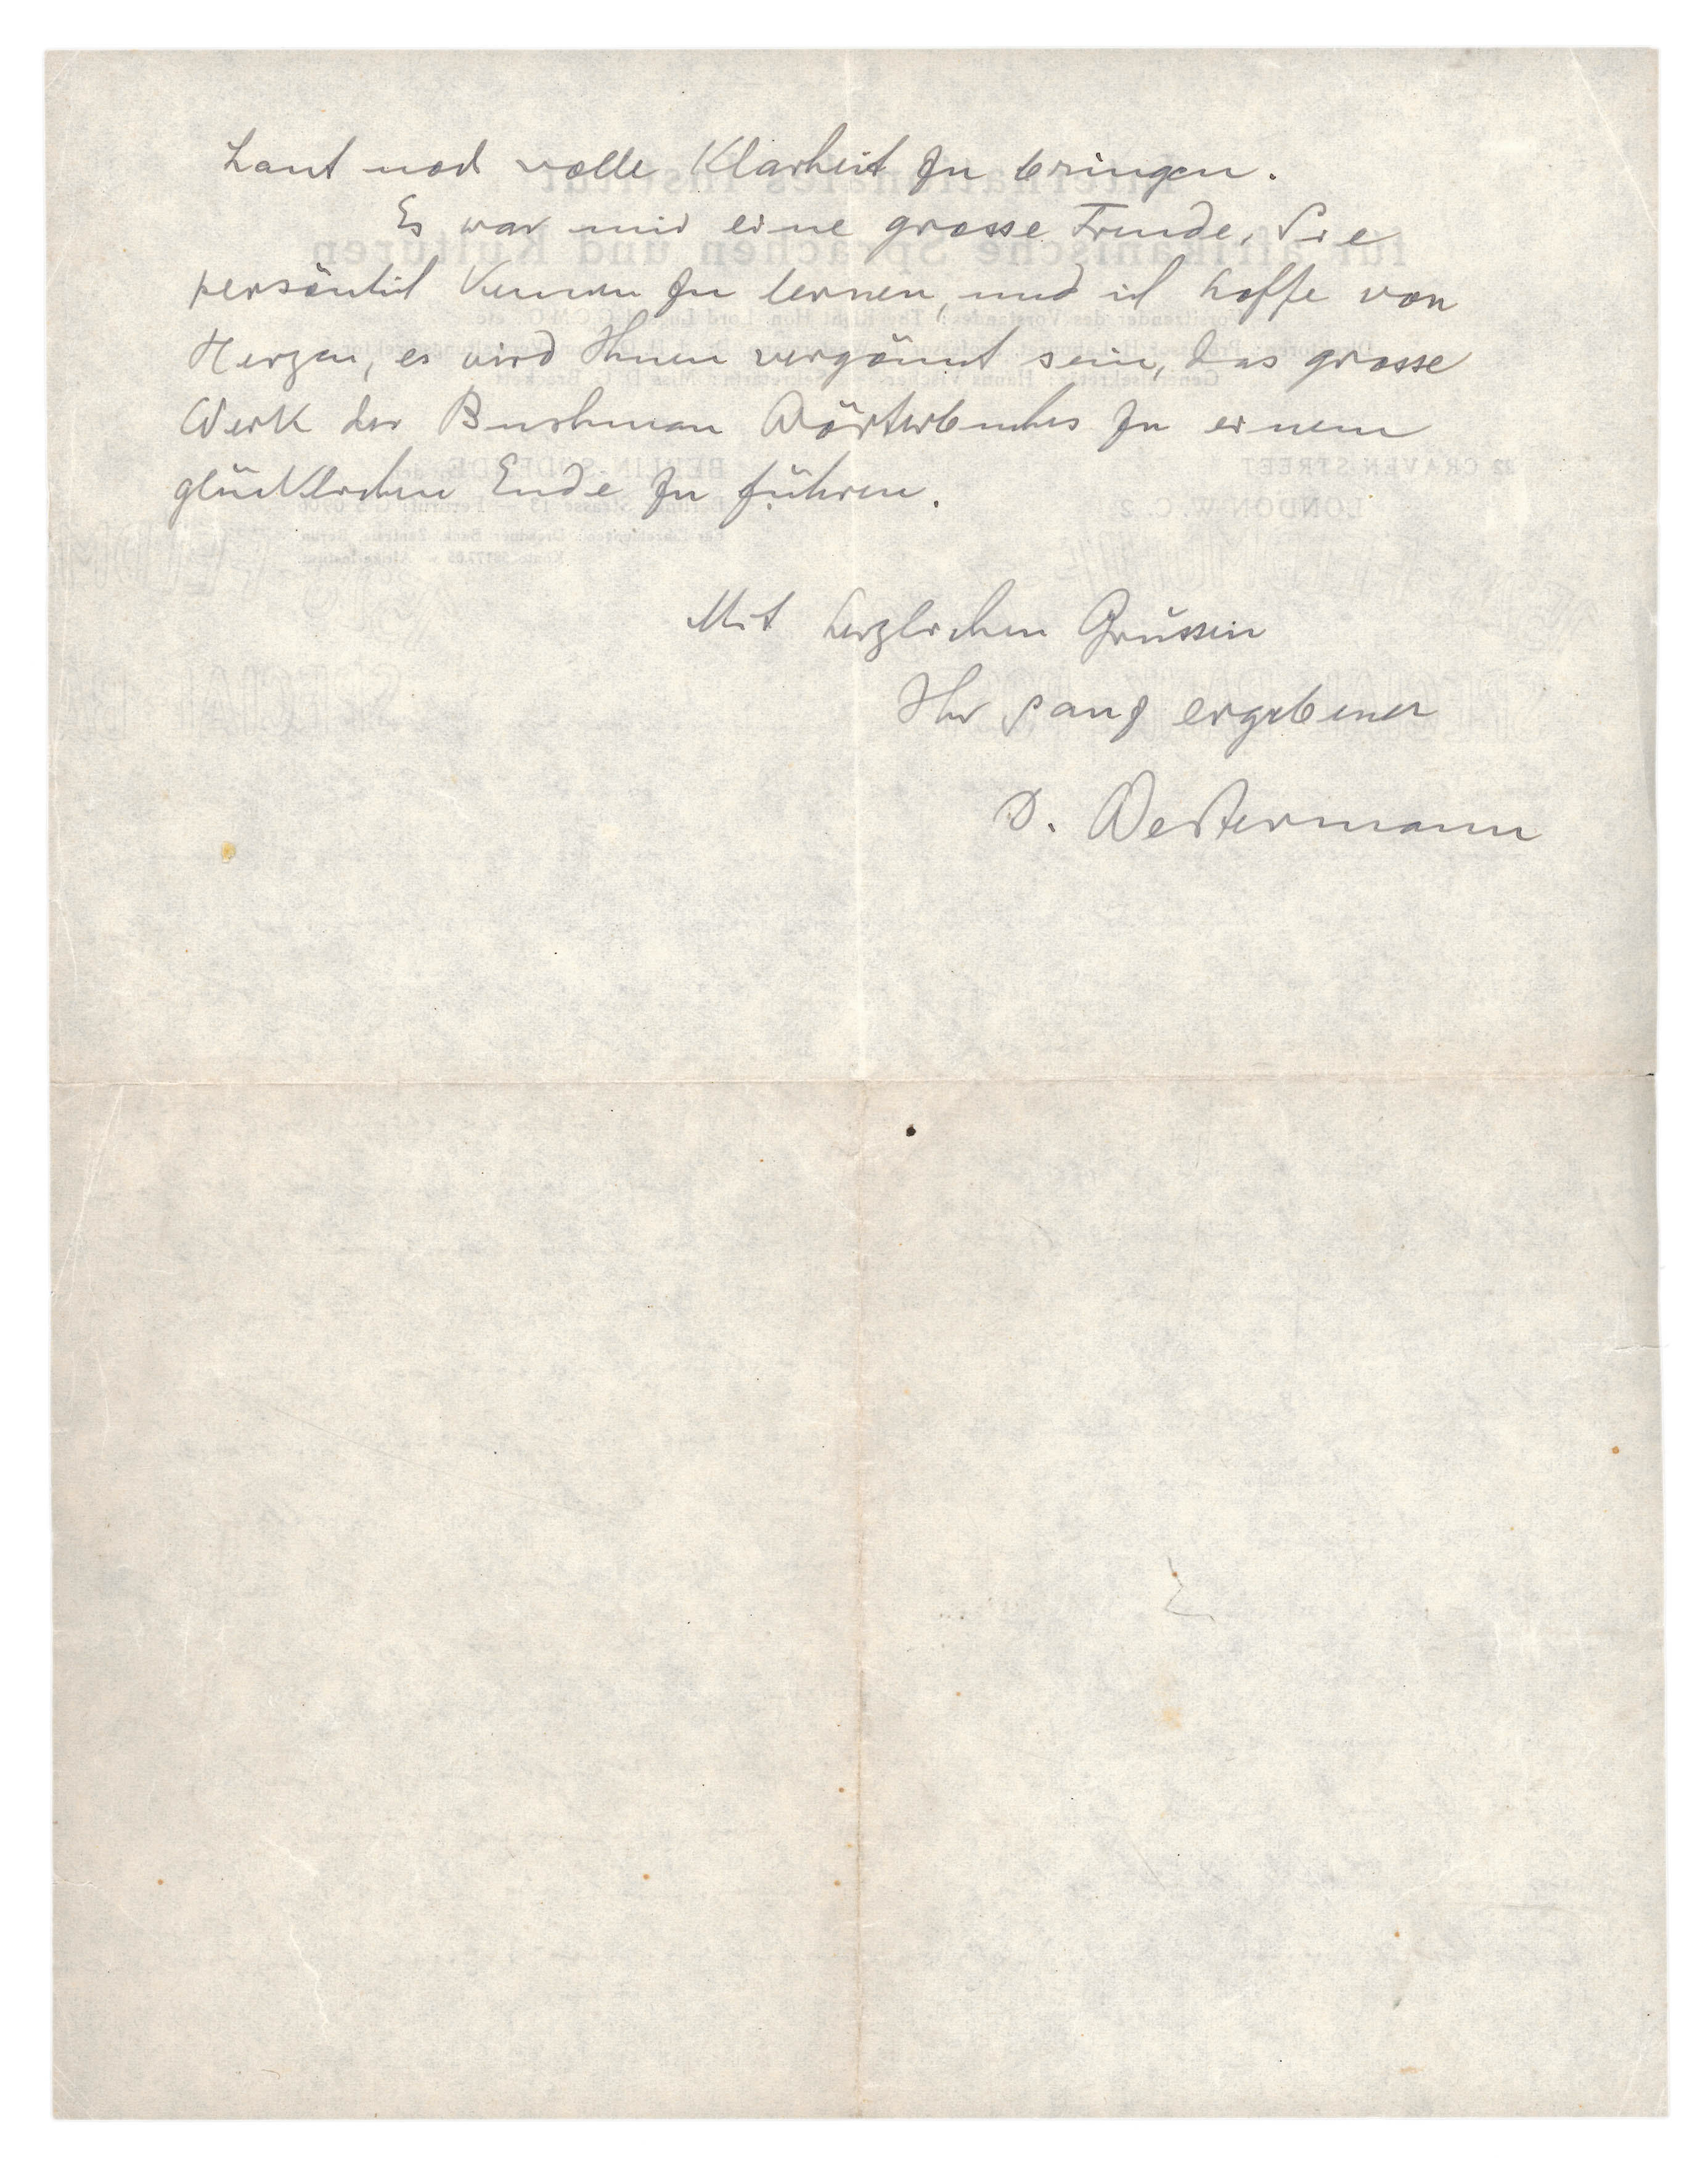 Laut noch volle Klarheit zu bringen.
Es war mir eine grosse Freude, Sie
persönlich kennen zu lernen, und ich hoffe von
Herzen, es wird Ihnen vergönnt sein, das grosse
Werk des Bushman Wörterbuches zu einem
glücklichen Ende zu führen.
Mit herzlichen Grüssen
Ihr ganz ergebener
D. Westermann